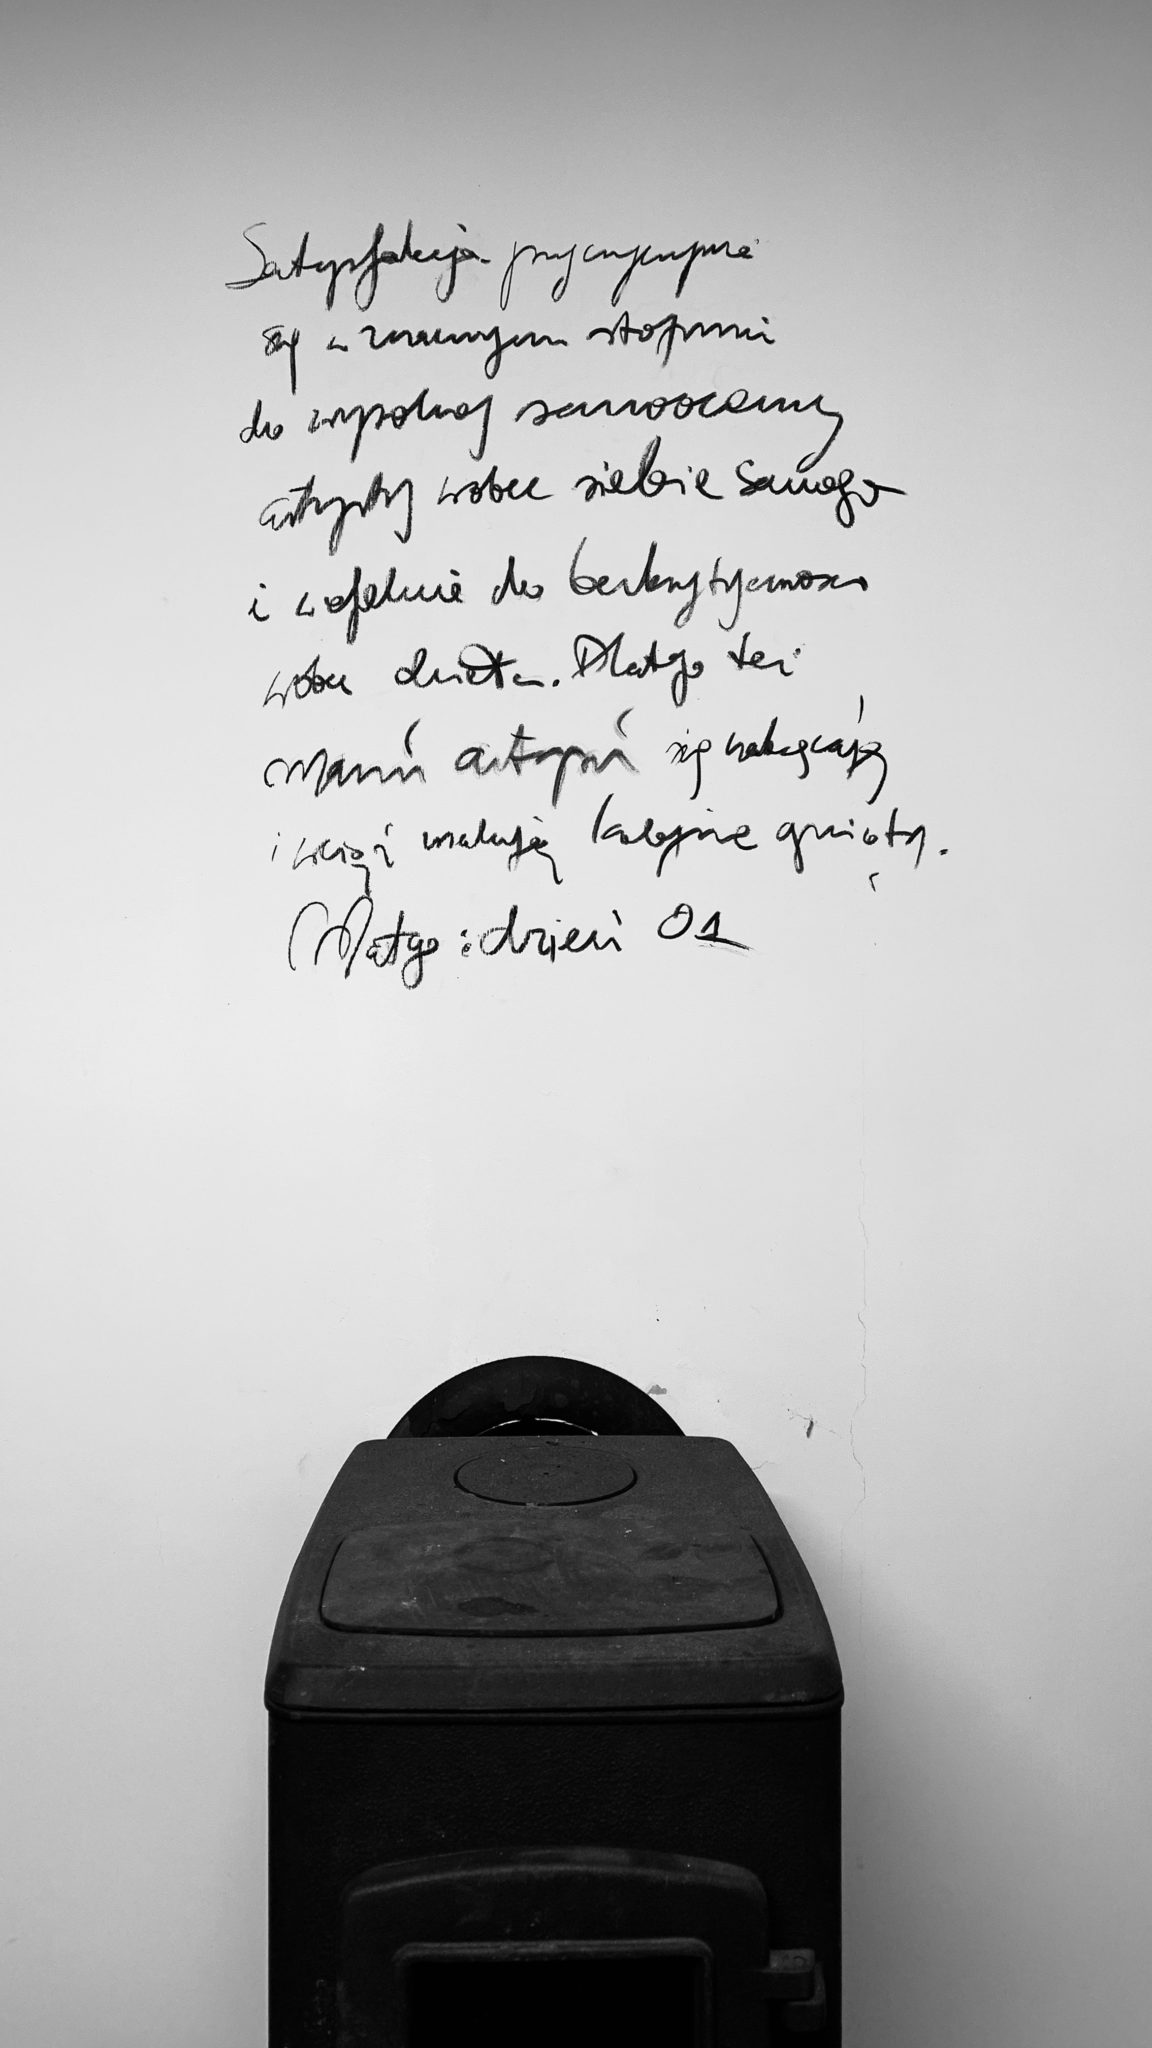 Satysfakcja przyczynia
się w znacznym stopniu
do wysokiej samooceny
artysty wobec siebie samego
i w efekcie do bezkrytyczności
wobec dzieła. Dlatego też
marni artyści się nakręcają
i wciąż malują kolejne gnioty.
Matgo: dzień 01